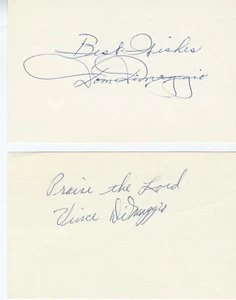 Best Wishes
Dom DiMaggio
Praise the Lord
Vince DiMaggio